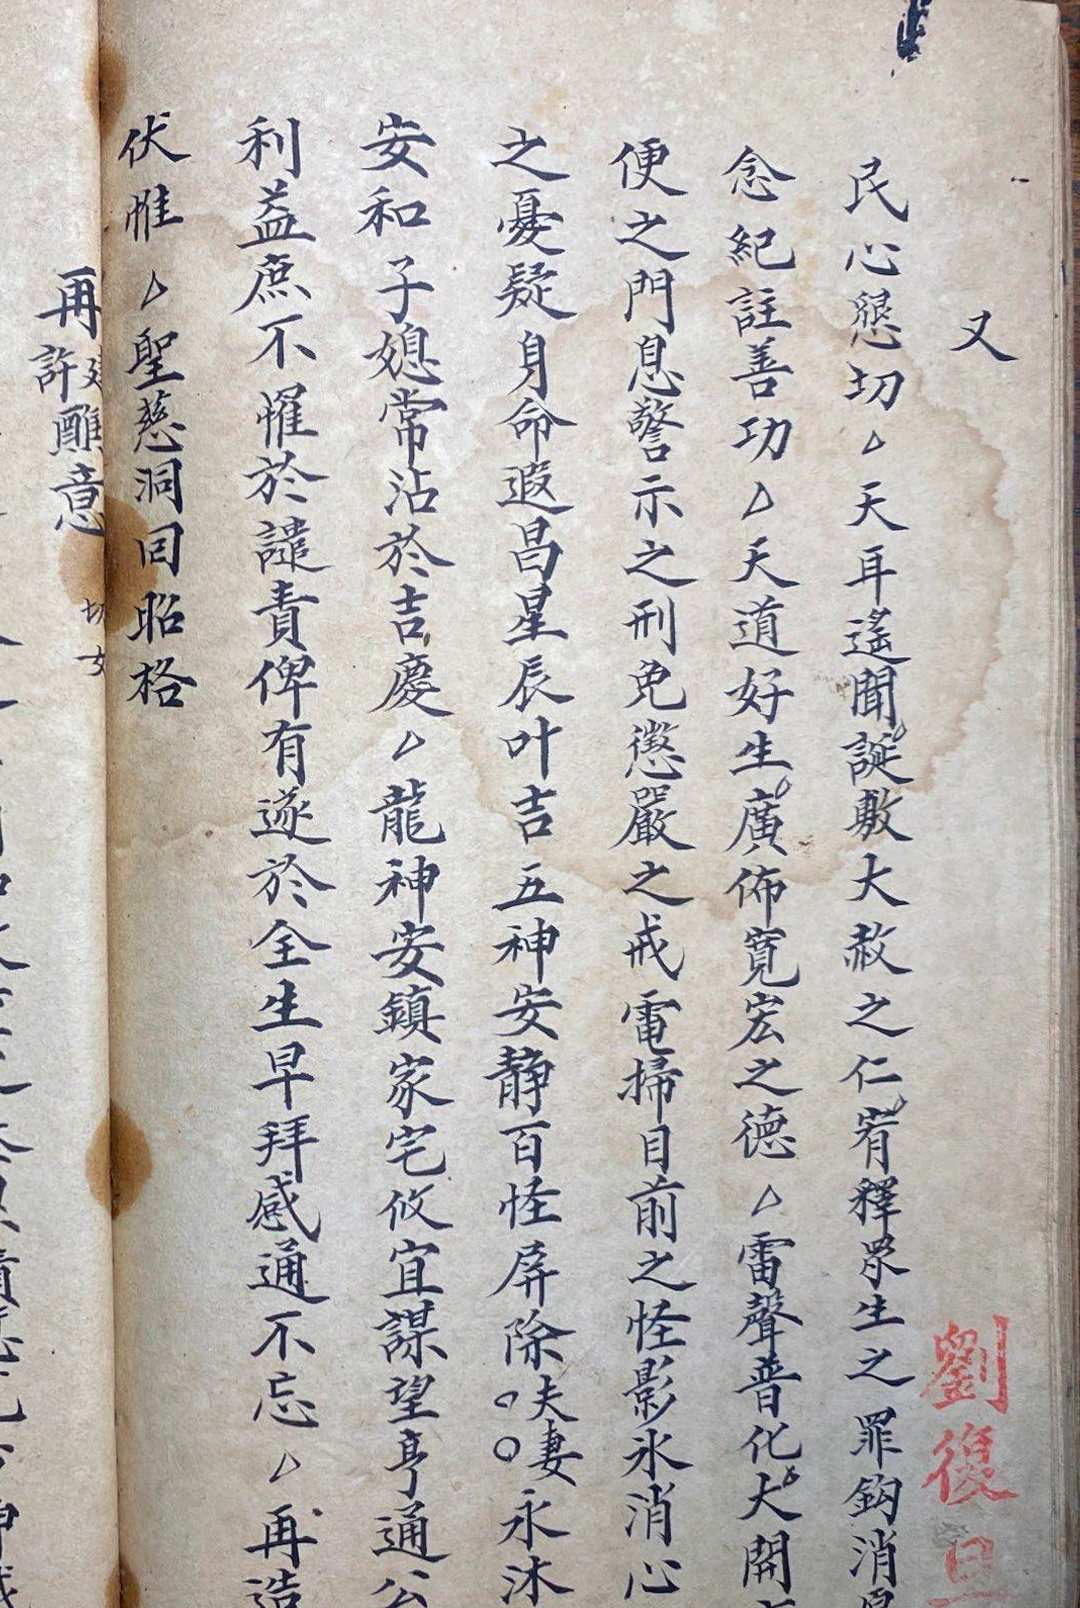 又
民心懇切天耳遙聞誕敷大赦之仁宥釋眾生之罪鈎消
念紀註善功天道好生廣佈寬宏之德雷聲普化大開
便之門息警示之刑免懲嚴之戒電掃目前之怪影氷消心
之憂疑身命遐昌星辰叶吉五神安靜百怪屏除夫妻永沐
安和子媳常沾於吉慶龍神安鎮家宅攸宜謀望亨通公
利益庶不懼於譴責俾有遂於全生早拜感通不忘再造
伏惟聖慈洞回昭格
再許醮意
劉復旦